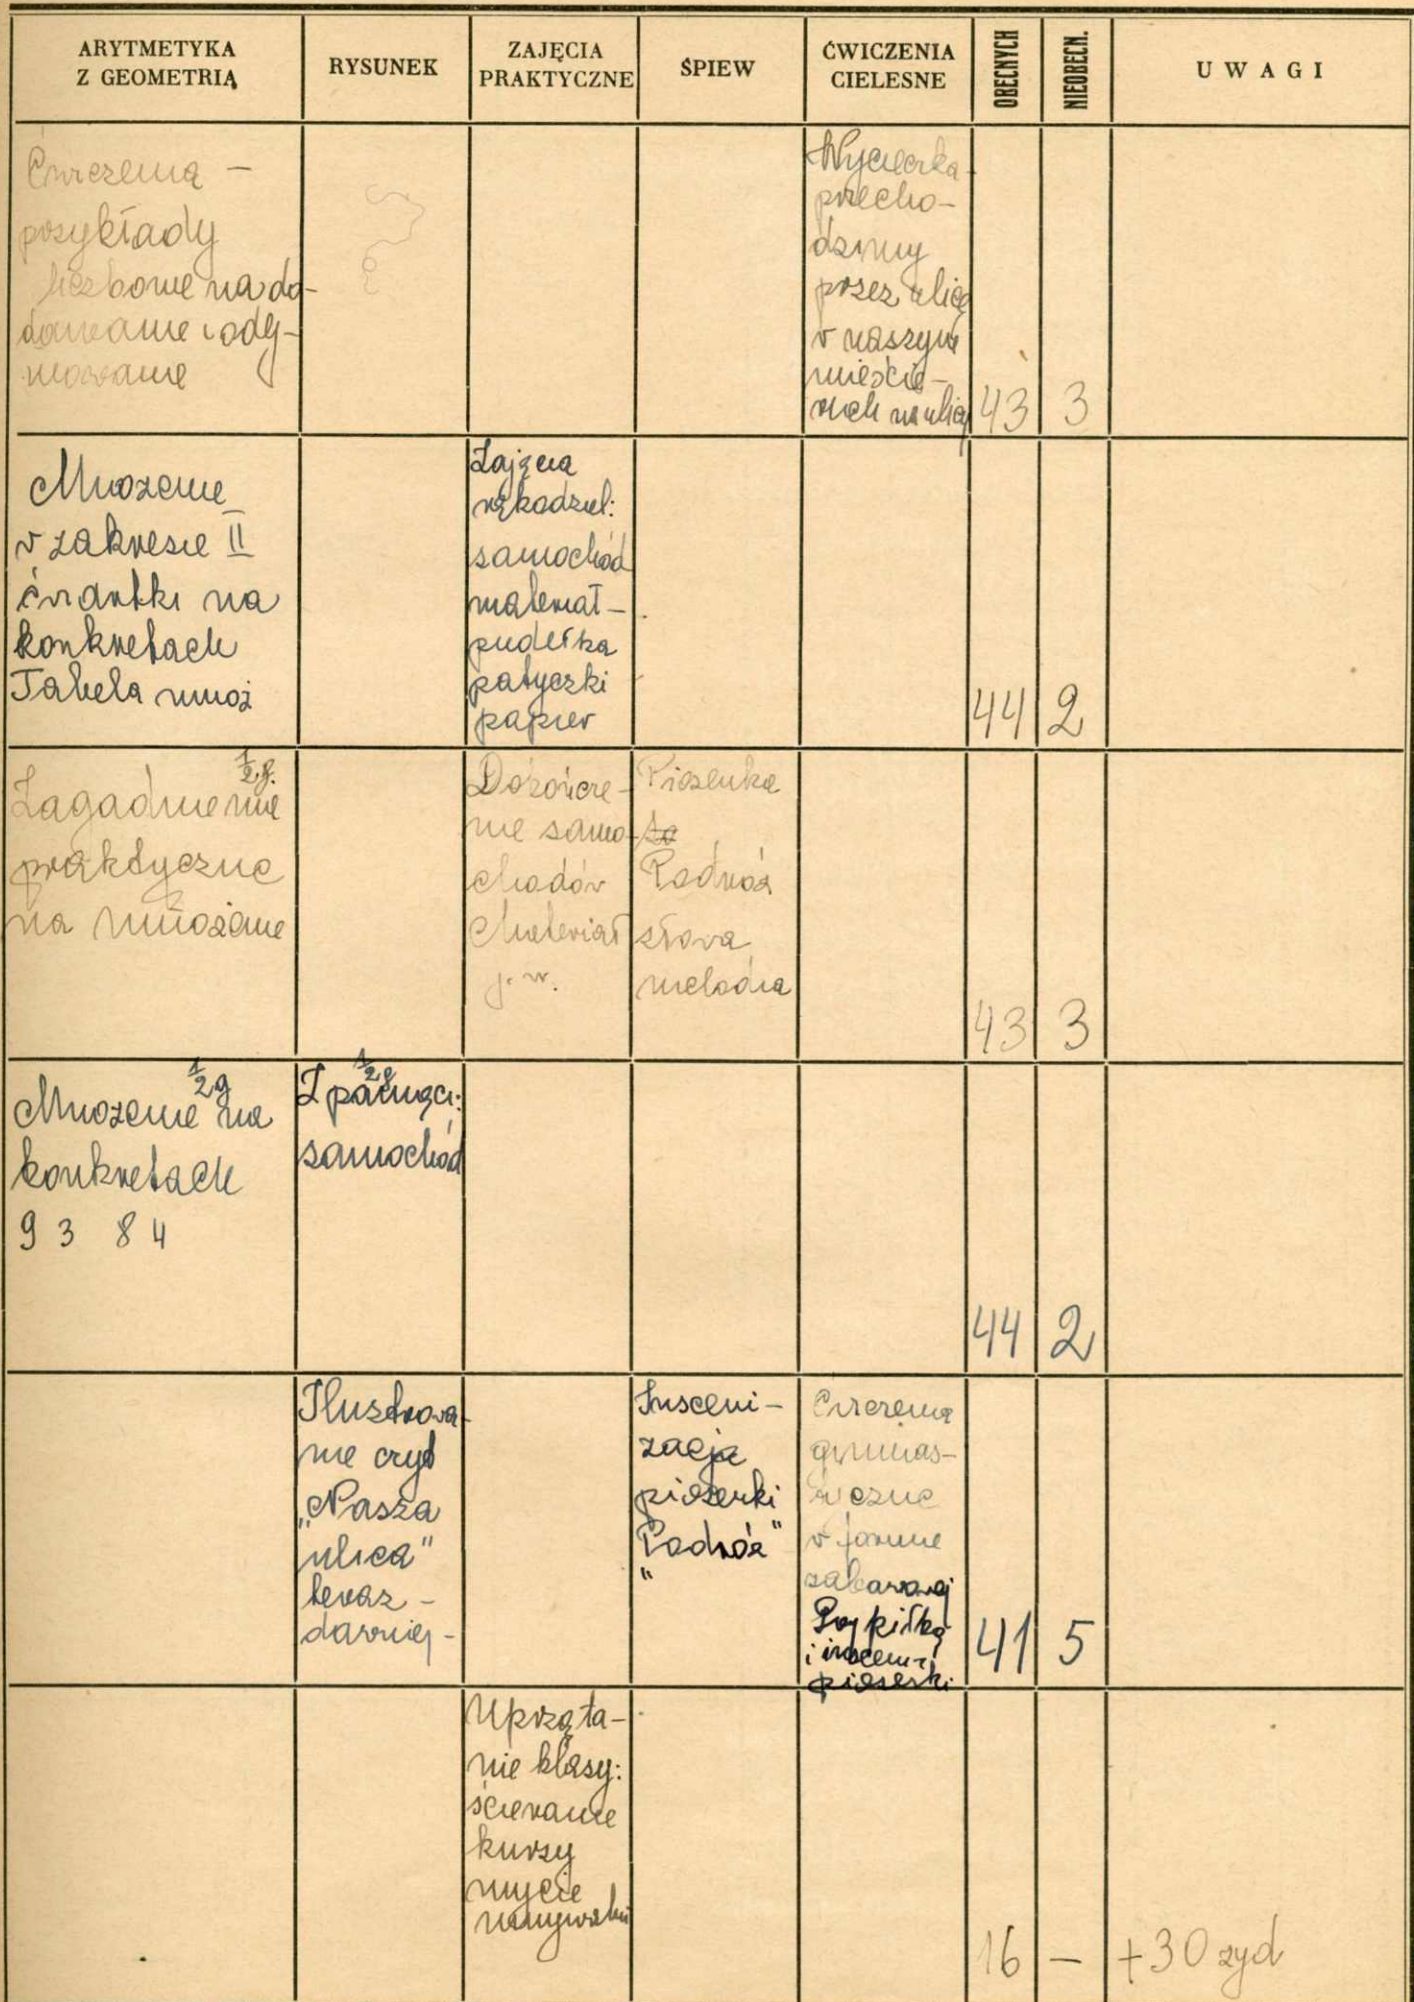 ARYTMETYKA
Z GEOMETRIĄ
RYSUNEK
ZAJĘCIA
PRAKTYCZNE
ŚPIEW
ĆWICZENIA
CIELESNE
OBECNYCH
NIEOBECN.
UWAGI
Ćwiczenia –
przykłady
liczbowe na do-
dawanie i odej-
mowanie
Wycieczka
przecho-
dzimy
przez ulicę
w naszym
mieście –
ruch na ulicy
43
3
Mnożenie
w zakresie II
ćwiartki na
konkretach
Tabela mnoż
Zajęcia
rękodziel:
samochód
materiał –
pudełka
patyczki
papier
44
2
1/2 g.
Zagadnienie
praktyczne
na mnożenie
Dokończe-
nie samo-
chodów
Materiał
j. w.
Piosenka
Podróż
słowa
melodia
43
3
1/2 g
Mnożenie na
konkretach
9 3 8 4
1/2 g
Z pamięci:
samochód
44
2
Ilustrowa-
nie czyt
„Nasza
ulica”
teraz –
dawniej –
Insceni-
zacja
piosenki
„Podróż”
Ćwiczenia
gimnas-
tyczne
w formie
zabawowej
piłką
i inscen.
piosenki
41
5
Uprząta-
nie klasy:
ścieranie
kurzy
mycie
umywalni
16
–
+30 żyd